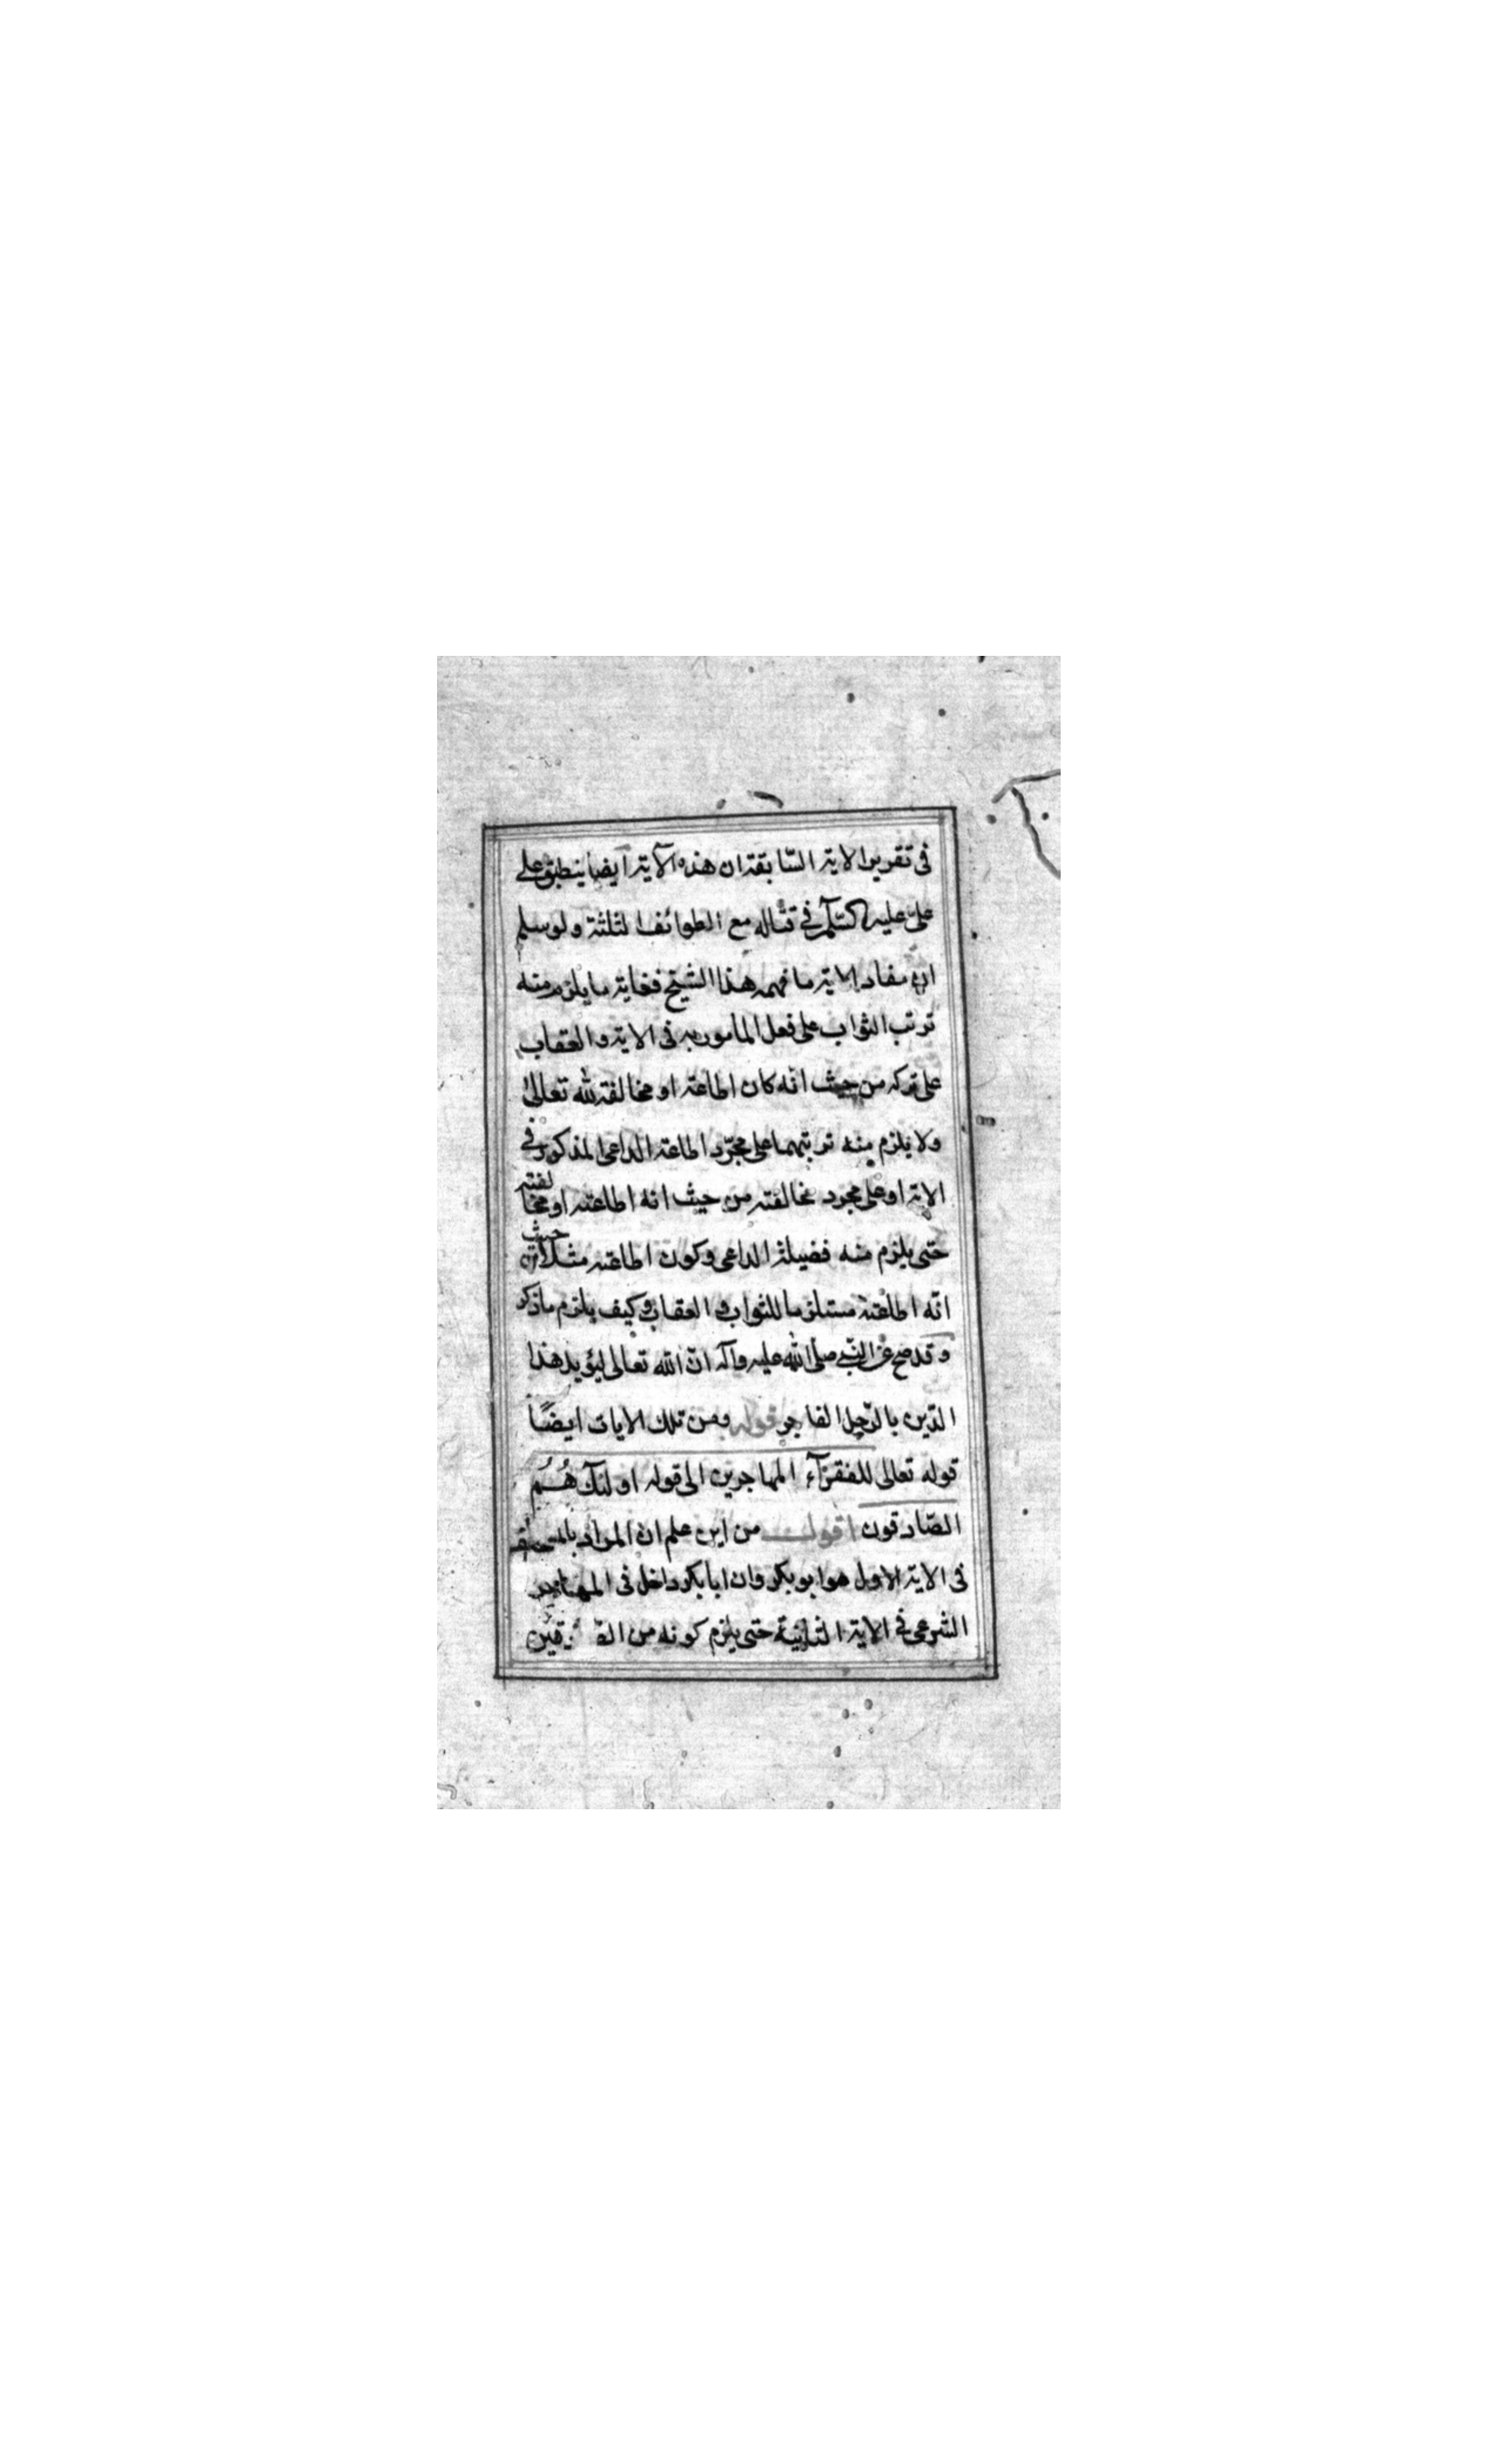 فى تقرير الاية السّابقة ان هذه الآية ايضا ينطبق على
علىّ عليه السّلام فى قتاله مع الطوائف الثلثة ولو سلم
ان مفاد الاية ما فهمه هذا الشيخ فغاية ما يلزم منه
ترتب الثواب على فعل المامور به فى الاية والعقاب
على تركه من حيث انه كان اطاعة او مخالفة لله تعالىٰ
ولا يلزم منه ترتبهما على مجرّد اطاعة الداعى المذكور فى
الاية او على مجرد مخالفته من حيث انه اطاعته او مخالفته
حتى يلزم منه فضيلة الداعى وكون اطاعته مثلا من حيث
انّه اطاعته مستلزما للثواب والعقاب وكيف يلزم ما ذكر
وقد صح عن النبىّ صلى الله عليه وآله انّ الله تعالى ليؤيد هذا
الدّين بالرّجل الفاجر قوله ومن تلك الايات ايضًا
قوله تعالى للفقرآء المهاجرين الى قوله اولئك هُمُ
الصّادقون اقول من اين علم ان المراد
فى الاية الاولى هو ابو بكر وان ابا بكر داخل فى
الشرعى فى الاية الثانية حتى يلزم كونه من